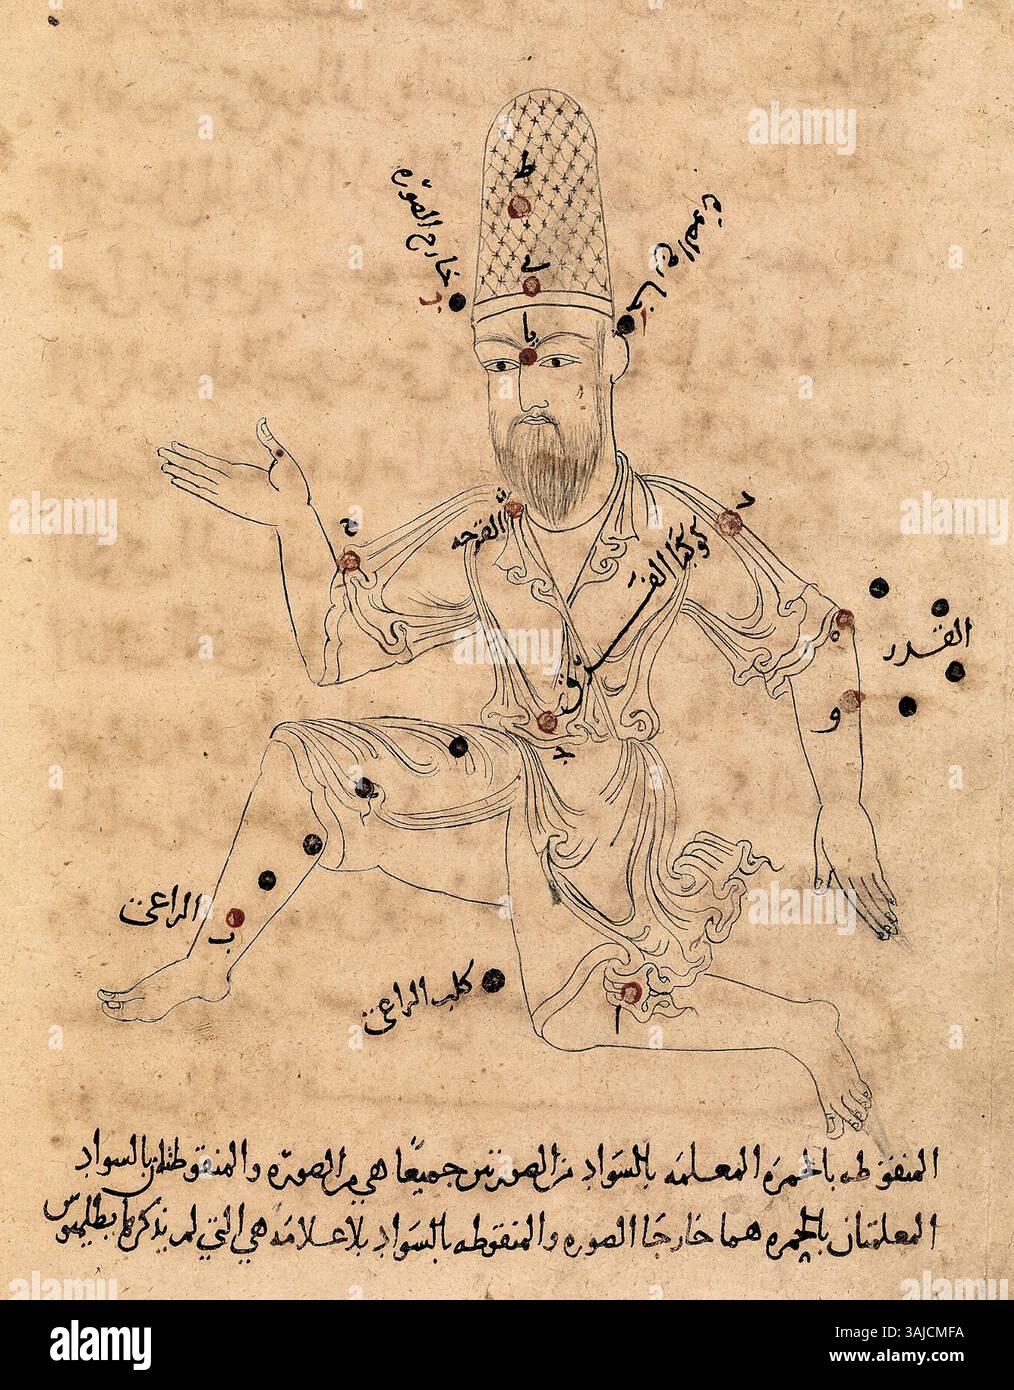 ط
خارج الصوره
خارج الصوره
ب
ا
ى
يا
ح
القرحه
ز
كوكبا الفرق
د
ه
القدر
و
ج
الراعى
ب
كلب الراعى
ا
المنقوطه بالحمره المعلمه بالسواد من الصورتين جميعًا هي من الصوره والمنقوطتان بالسواد
المعلمتان بالحمره هما خارجا الصوره والمنقوطه بالسواد بلا علامه هي التي لم يذكرها بطلميوس
alamy
Image ID: 3AJCMFA
www.alamy.com